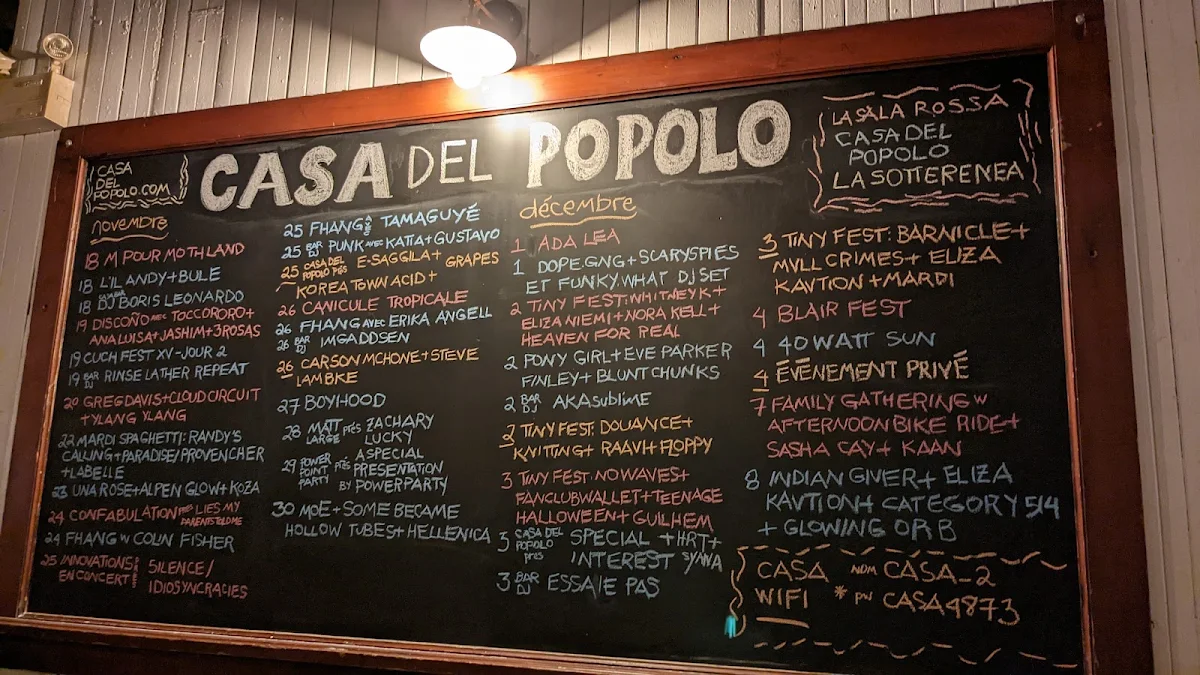 CASA
DEL
POPOLO.COM
CASA DEL POPOLO
LA SALA ROSSA
CASA DEL
POPOLO
LA SOTTERENEA
novembre
18 M POUR MOTHLAND
18 L'IL ANDY + BULE
18 DJ BORIS LEONARDO
19 DISCOÑO AVEC TOCCORORO +
ANA LUISA + JASHIM + 3ROSAS
19 CUCH FEST XV - JOUR 2
19 BAR DJ RINSE LATHER REPEAT
20 GREG DAVIS + CLOUD CIRCUIT
+ YLANG YLANG
22 MARDI SPAGHETTI: RANDY'S
CALLING + PARADISE/PROVENCHER
+ LABELLE
23 UNA ROSE + ALPEN GLOW + KOZA
24 CONFABULATION PRÉS LIES MY
PARENTS TOLD ME
24 FHANG W COLIN FISHER
25 INNOVATIONS SILENCE/
EN CONCERT IDIOSYNCRACIES
25 FHANG TAMAGUYÉ
25 BAR DJ PUNK AVEC KATIA + GUSTAVO
25 CASA DEL POPOLO PRÉS E-SAGGILA + GRAPES
KOREA TOWN ACID +
26 CANICULE TROPICALE
26 FHANG AVEC ERIKA ANGELL
26 BAR DJ IMGADDSEN
26 CARSON MCHONE + STEVE
LAMBKE
27 BOYIHOOD
28 MATT LARGE PRÉS ZACHARY
LUCKY
29 POWER POINT PARTY PRÉS A SPECIAL
PRESENTATION
BY POWERPARTY
30 MOE + SOME BECAME
HOLLOW TUBES + HELLENICA
décembre
1 ADA LEA
1 DOPE.GNG + SCARYSPIES
ET FUNKY.WHAT DJ SET
2 TINY FEST: WHITNEY K +
ELIZA NIEMI + NORA KELL +
HEAVEN FOR REAL
2 PONY GIRL + EVE PARKER
FINLEY + BLUNT CHUNKS
2 BAR DJ AKASUBLIME
2 TINY FEST: DOUANCE +
KNITTING + RAAVI + FLOPPY
3 TINY FEST: NO WAVES +
FANCLUBWALLET + TEENAGE
HALLOWEEN + GUILHEM
3 CASA DEL POPOLO prés SPECIAL + HRT +
INTEREST SYANA
3 BAR DJ ESSAIE PAS
3 TINY FEST: BARNICLE +
MVLL CRIMES + ELIZA
KAVTION + MARDI
4 BLAIR FEST
4 40 WATT SUN
4 ÉVÉNEMENT PRIVÉ
7 FAMILY GATHERING W
AFTERNOON BIKE RIDE +
SASHA CAY + KAAN
8 INDIAN GIVER + ELIZA
KAVTION + CATEGORY 5/4
+ GLOWING ORB
CASA NOM CASA_2
WIFI * PW CASA4873